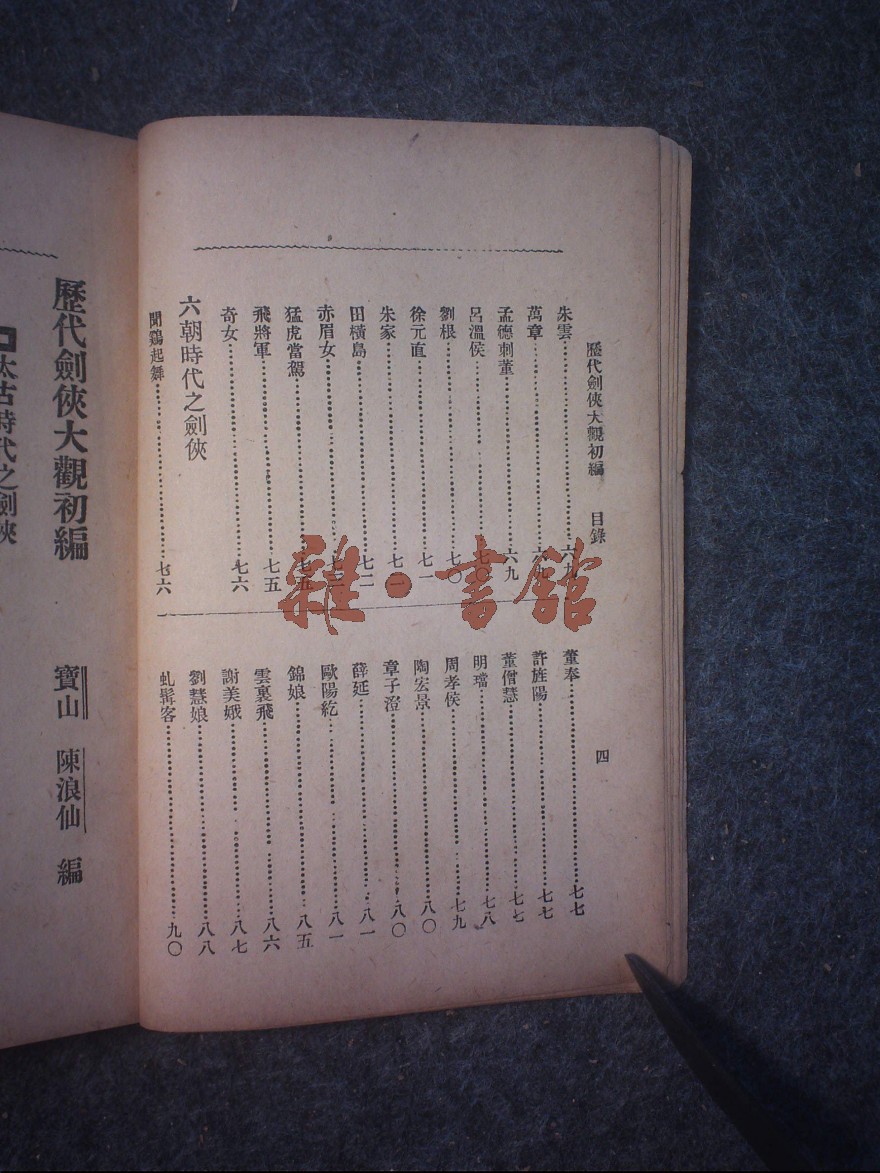 歷代劍俠大觀初編　目錄　四
朱雲……六九
萬章……六九
孟德刺董……六九
呂溫侯……七〇
劉根……七〇
徐元直……七一
朱家……七一
田橫島……七二
赤眉女……
猛虎當駕……七五
飛將軍……七五
奇女……七六
六朝時代之劍俠
聞鷄起舞……七六
董奉……七七
許旌陽……七七
董僧慧……七七
明璫……七八
周孝侯……七九
陶宏景……八〇
章子澄……八〇
薛延……八一
歐陽紇……八一
錦娘……八五
雲裏飛……八六
謝美娥……八七
劉慧娘……八八
虬髯客……九〇
歷代劍俠大觀初編
寶山　陳浪仙　編
太古時代之劍俠
雜·書館